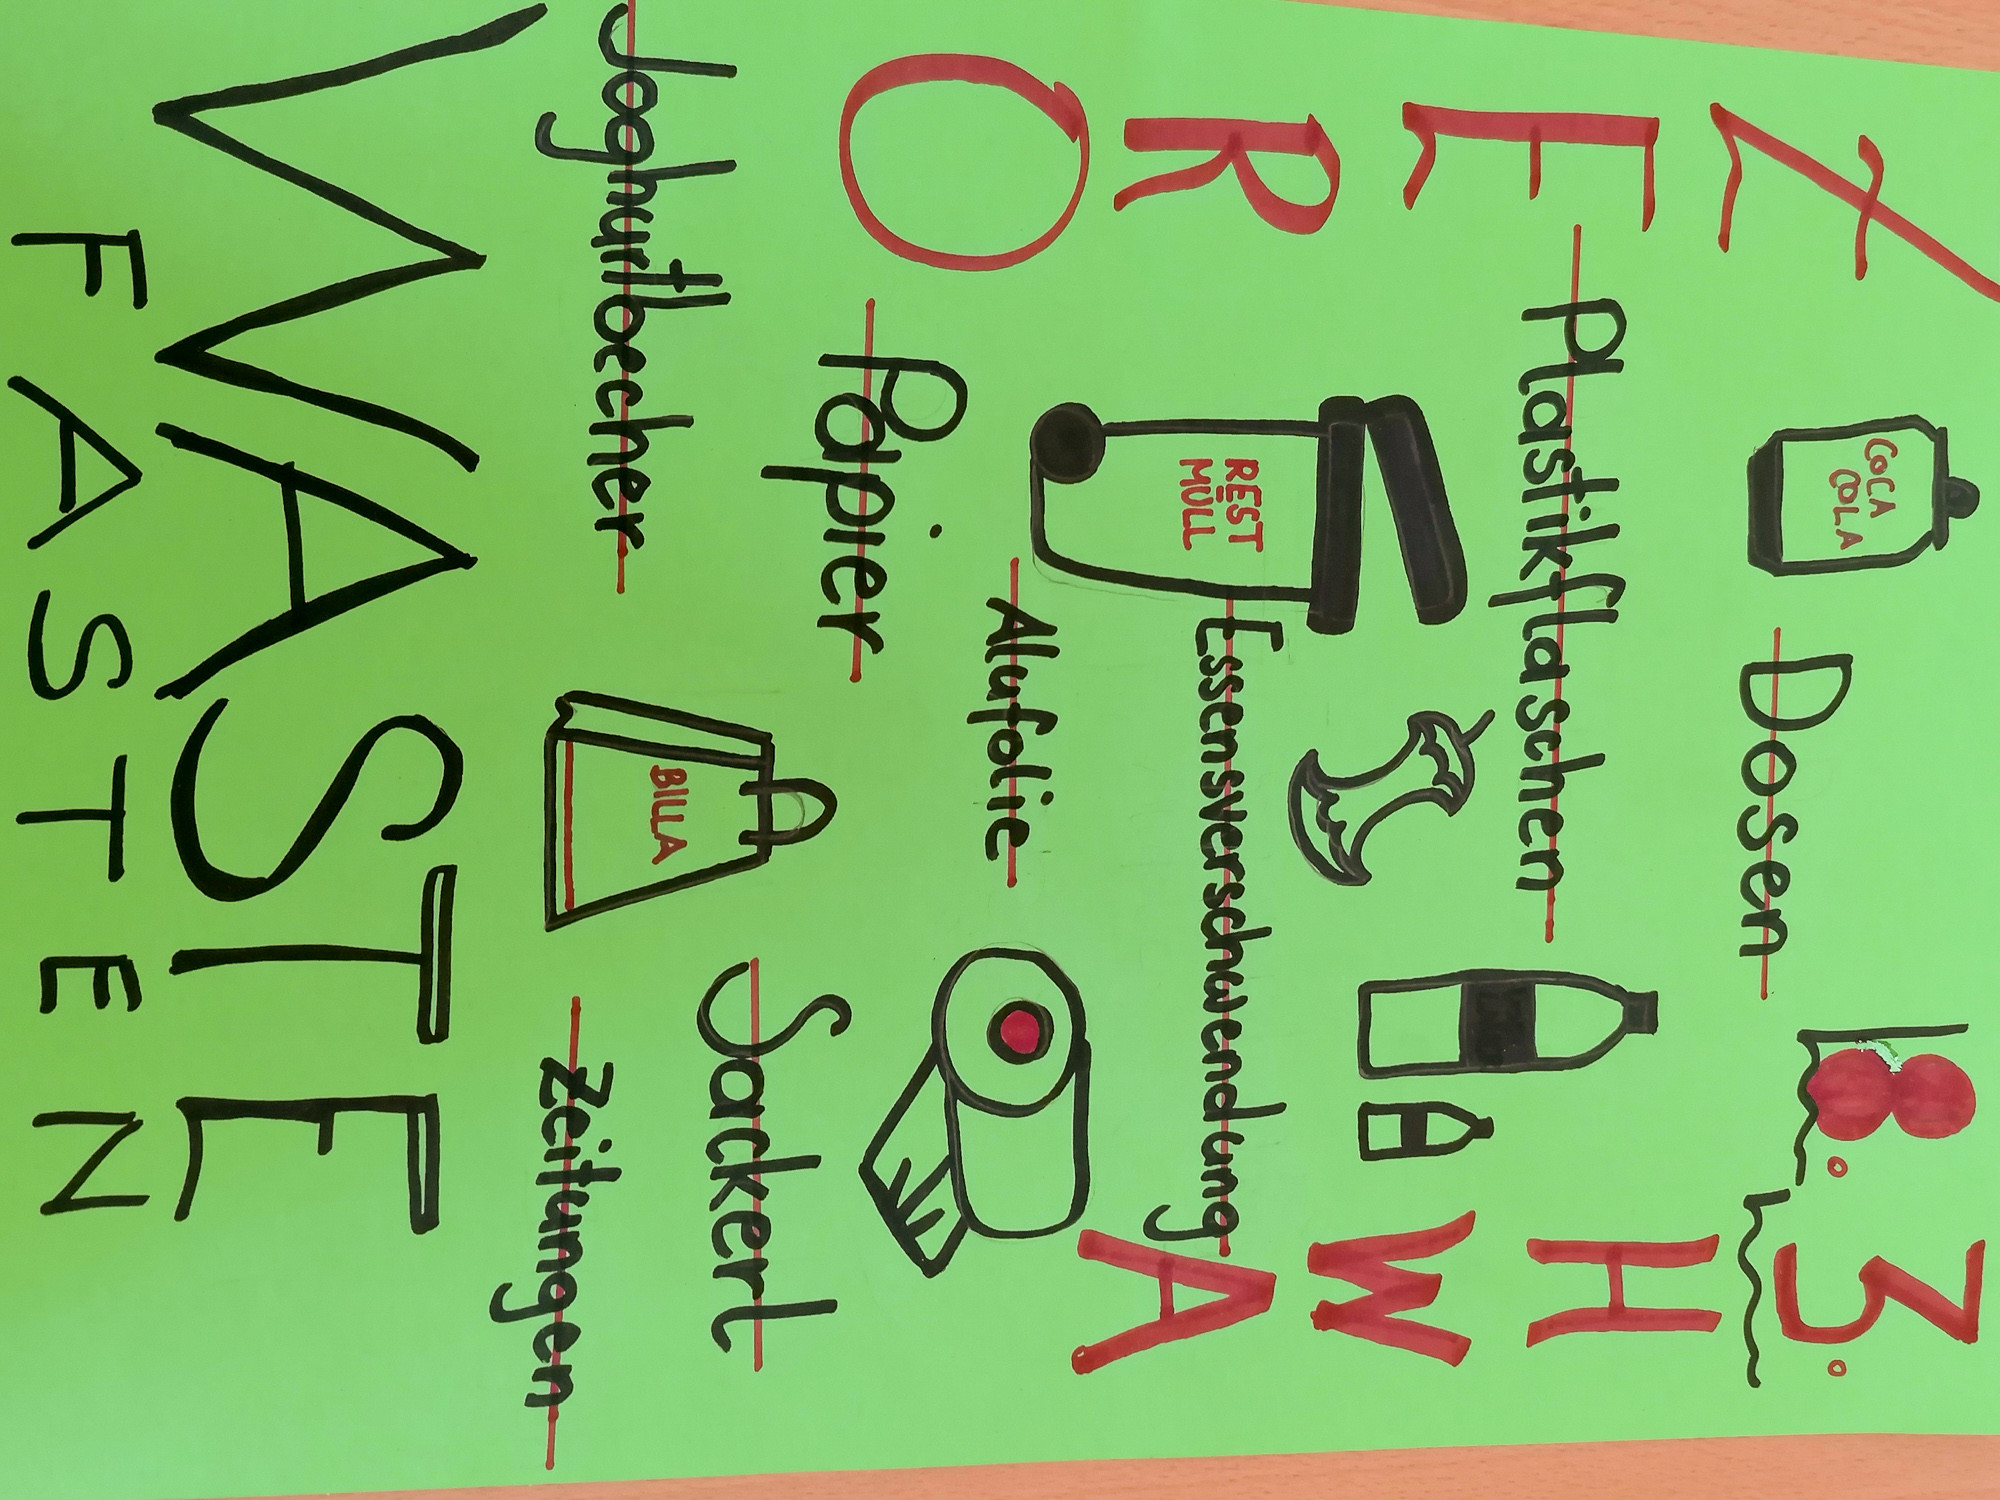 ZERO
COCA
COLA
Dosen
8. 3.
HWA
Plastikflaschen
REST
MÜLL
Essensverschwendung
Alufolie
Papier
Sackerl
BILLA
Joghurtbecher
Zeitungen
WASTE
FASTEN